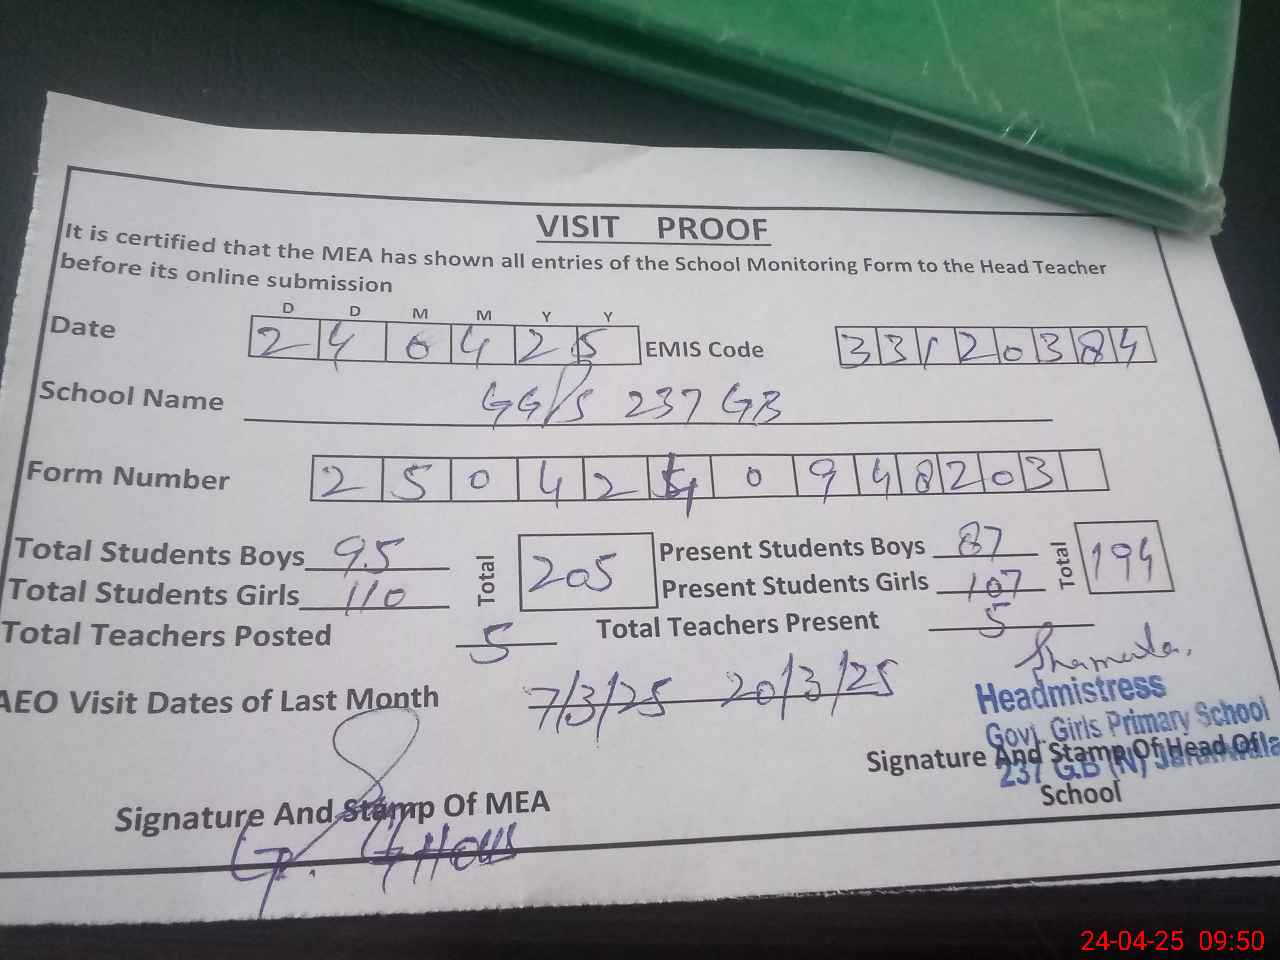 VISIT PROOF
It is certified that the MEA has shown all entries of the School Monitoring Form to the Head Teacher
before its online submission
D D M M Y Y
Date 2 4 0 4 2 5 EMIS Code 3 3 1 2 0 3 8 4
School Name GGPS 237 GB
Form Number 2 5 0 4 2 4 0 9 4 8 2 0 3
Total Students Boys 95 Total 205 Present Students Boys 87 Total 194
Total Students Girls 110 Present Students Girls 107
Total Teachers Posted 5 Total Teachers Present 5
AEO Visit Dates of Last Month 7/3/25 20/3/25
Headmistress
Govt. Girls Primary School
237 GB (N)
Signature And Stamp Of Head Of
School
Signature And Stamp Of MEA
24-04-25 09:50